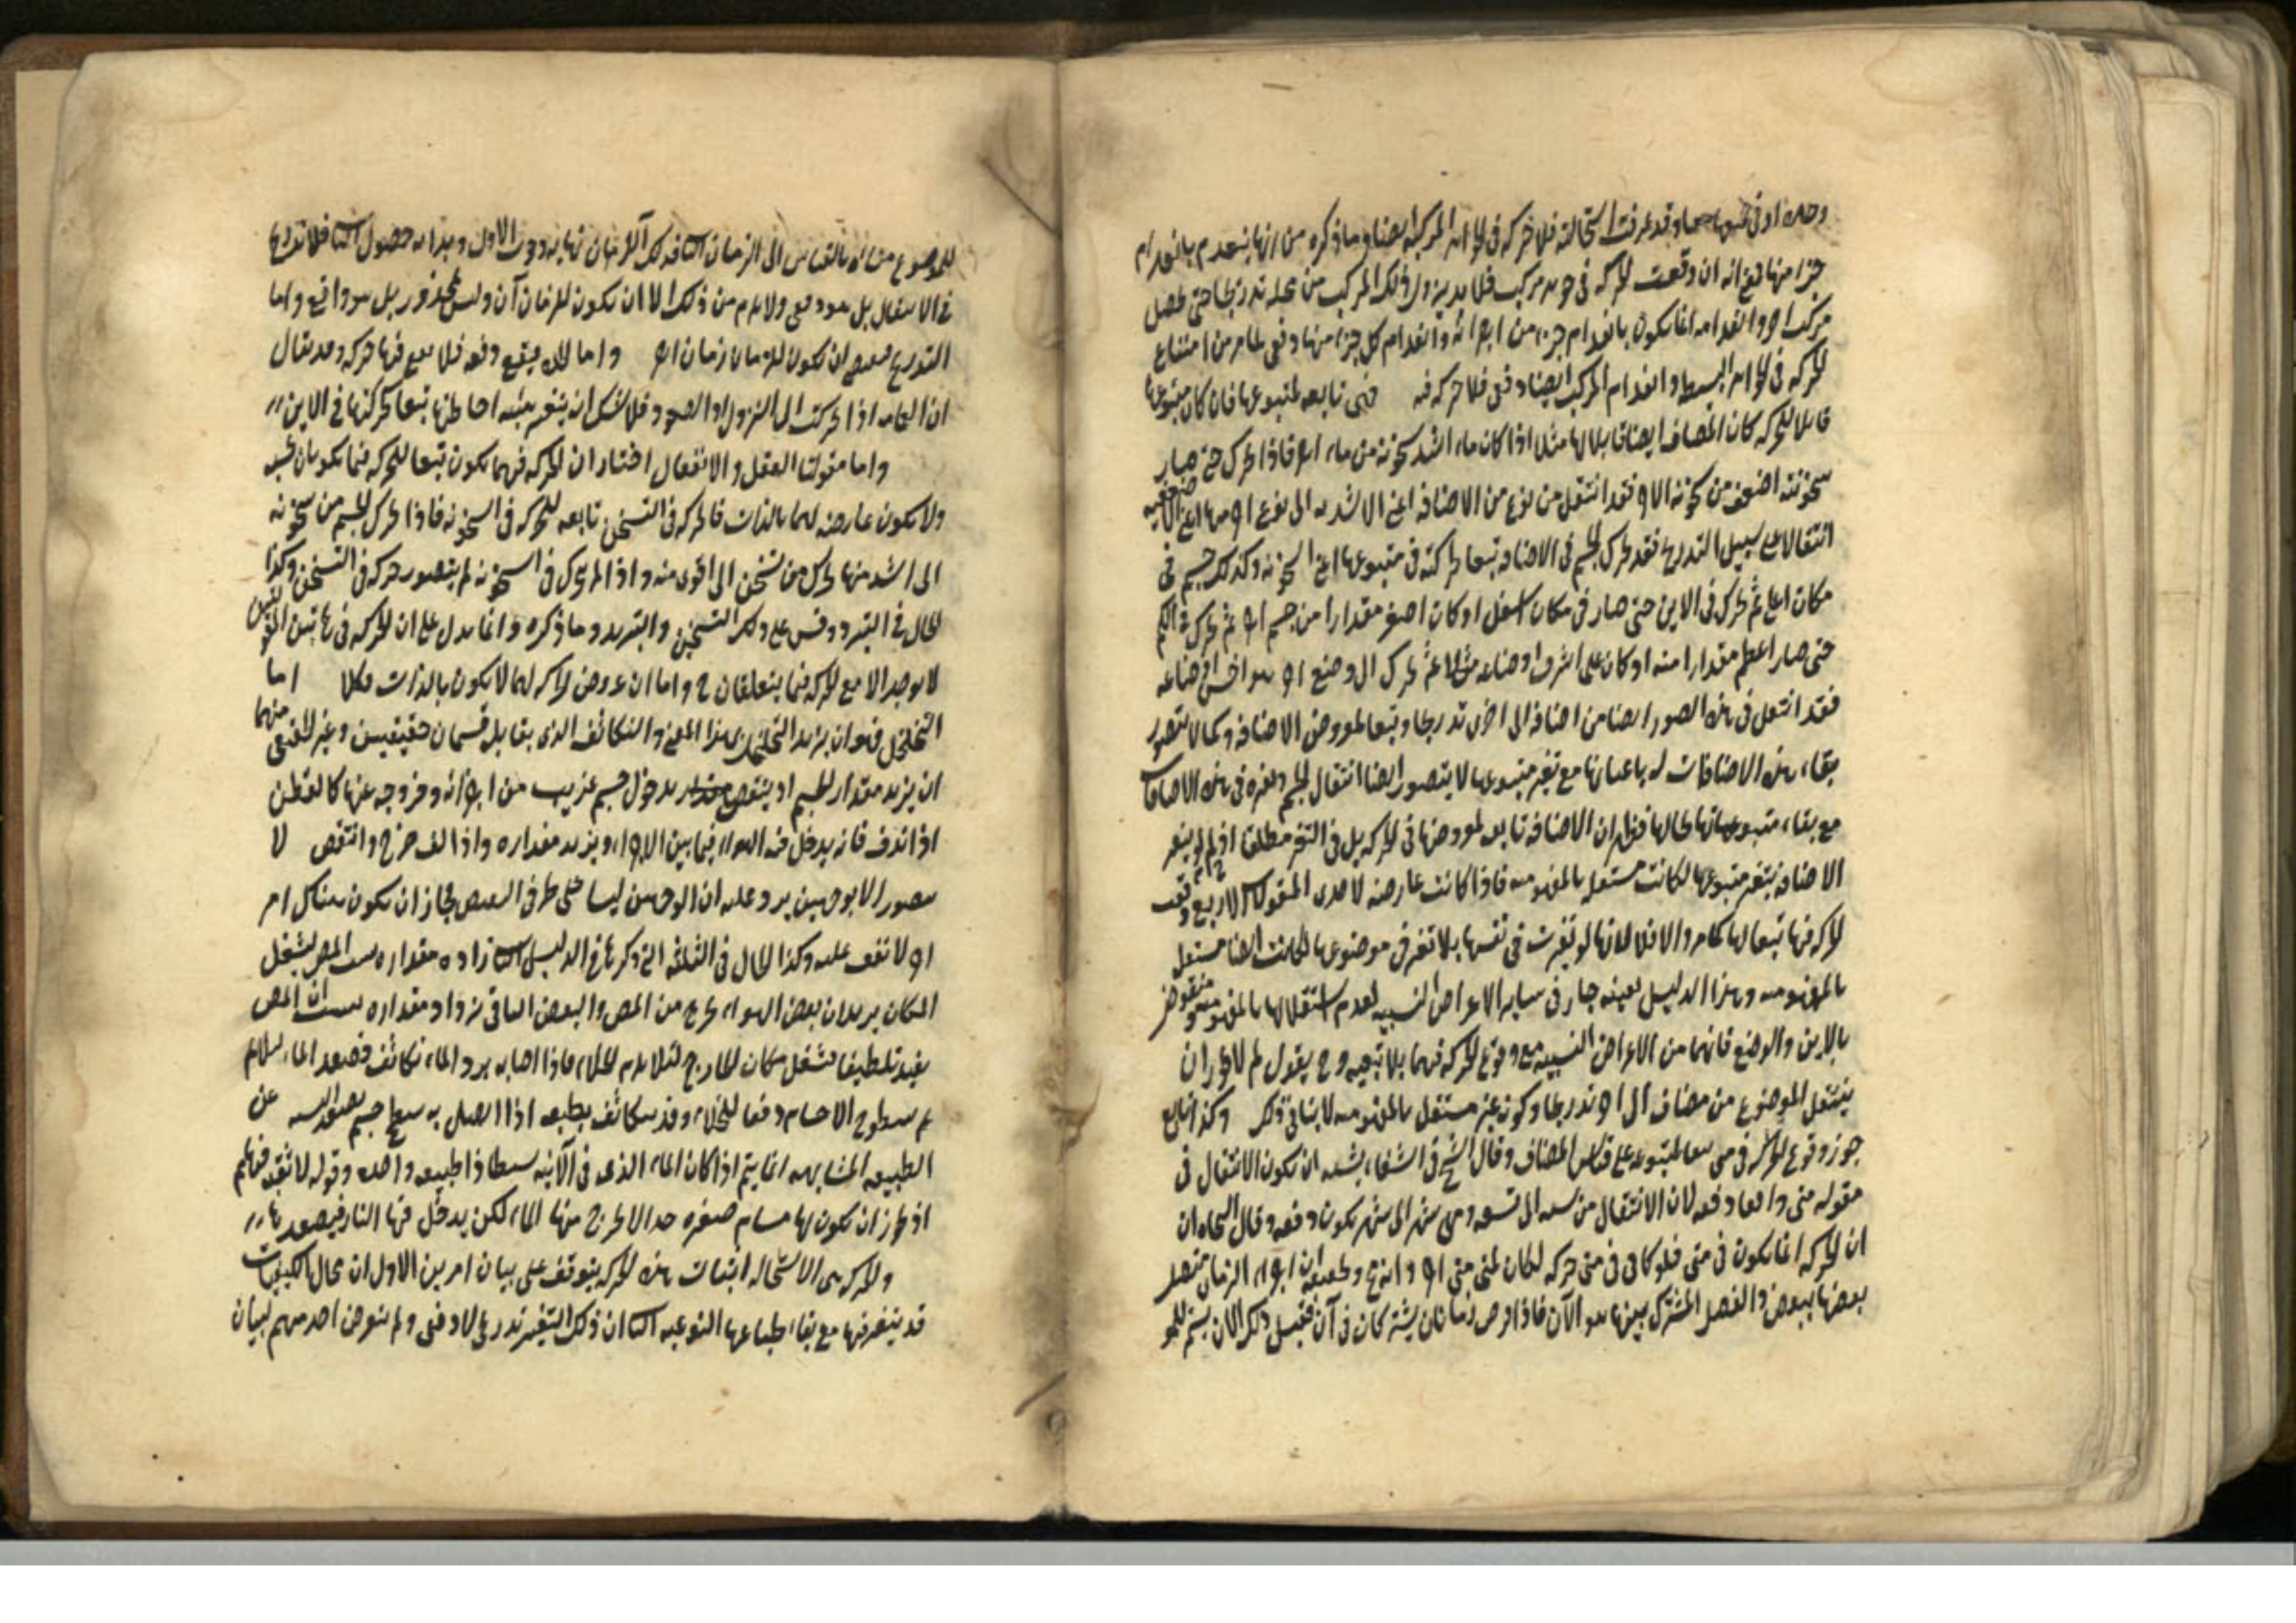 وحده او في جميعها معا وقد عرفت استحالته فلا حركة في الجواهر المركبة ايضا وما ذكره من انها ينعدم بانعدام
جزء منها فمع انه ان وقعت الحركة في جوهر مركب فلا بد يزول ذلك المركب من محله تدريجا حتى يحصل
مركب اخر وانعدامه انما يكون بانعدام جزء من اجزائه وانعدام كل جزء منها دفعى لما مر من امتناع
الحركة في الجواهر البسيطه وانعدام المركب ايضا دفعى فلا حركة فيه فهى تابعه لمتبوعها فان كان متبوعها
قابلا للحركة كان المضاف ايضا قابلا لها مثلا اذا كان ماء اشد سخونة من ماء اخر فاذا تحرك حتى صار
سخونته اضعف من سخونة الاخر فقد انتقل من نوع من الاضافه اعنى الاشديه الى نوع اخر منها اعنى الاضعفيه
انتقالا على سبيل التدريج فقد تحرك الجسم في الاضافه تبعا لحركته في متبوعها اعنى السخونه وكذلك جسم في
مكان اعلى ثم تحرك في الاين حتى صار في مكان اسفل او كان اصغر مقدارا من جسم اخر ثم تحرك في الكم
حتى صار اعظم مقدارا منه او كان على اشرف اوضاعه مثلا ثم تحرك الى وضع اخر هو اخس اوضاعه
فقد انتقل في هذه الصور ايضا من اضافة الى اخرى تدريجا وتبعا لمعروض الاضافه وكما لا يتصور
بقاء هذه الاضافات باعيانها مع تغير متبوعها لا يتصور ايضا انتقال الجسم وتغيره في هذه الاضافات
مع بقاء متبوعاتها بحالها فظهر ان الاضافه تابعه لمعروضها في الحركة بل في التغير مطلقا اذ لو لم يتغير
الاضافه بتغير متبوعها لكانت مستقله بالمفهوميه فاذا كانت عارضه لاحدى المقولات الاربع وقعت
الحركة فيها تبعا لها كما مر والا فلا لانها لو تغيرت في نفسها بلا تغير في موضوعها لكانت ايضا مستقله
بالمفهوميه وهذا الدليل بعينه جار في ساير الاعراض النسبيه لعدم استقلالها بالمفهوميه وهو منقوض
بالاين والوضع فانهما من الاعراض النسبيه مع وقوع الحركة فيهما بلا تبعيه وح يقول لم لا يجوز ان
ينتقل الموضوع من مضاف الى اخر تدريجا وكونه غير مستقل بالمفهوميه لا ينافى ذلك وكذا متى
جوز وقوع الحركة في متى تبعا لمتبوعه على قياس المضاف وقال الشيخ في الشفاء يشبه ان يكون الانتقال في
مقوله متى واقعا دفعه لان الانتقال من سنه الى سنه ومن شهر الى شهر يكون دفعه وقال النجاه ان
ان الحركة انما يكون في متى فلو كان في متى حركه لكان لمتى متى اخر وانه مح وتحقيقه ان اجزاء الزمان متصل
بعضها ببعض والفصل المشترك بينها هو الآن فاذا فرض زمانان يشتركان في آن فقبل ذلك الآن يستمر للموضوع
للموضوع متاه بالقياس الى الزمان
في الانتقال بل هو دفعى ولا يلزم من ذلك الا ان يكون للزمان آن وليس بمحذور بل هو واقع واما
التدريج فيقتضى ان يكون للزمان زمان اخر واما الملك فيقع دفعه فلا يقع فيها حركه وقد يقال
ان العمامه اذا تحركت الى النزول او الصعود فلا شك ان يتغير هيئه احاطتها تبعا لحركتها في الاين
واما مقولتا الفعل والانفعال اختار ان الحركة فيهما يكون تبعا للحركه فيما يكونان بحسبه
ولا يكون عارضه لهما بالذات فالحركه في التسخن تابعه للحركه في السخونه فاذا تحرك الجسم من سخونه
الى اشد منها تحرك من تسخن الى اقوى منه واذا لم يتحرك في السخونه لم يتصور حركه في التسخن وكذا
الحال في التبرد وقس على ذلك التسخين والتبريد وما ذكره انما يدل على ان الحركه في هاتين المقولتين
لا يوجد الا مع الحركه فيما يتعلقان به واما ان عروض الحركه لهما لا يكون بالذات فكلا اما
التخلخل فهو ان يزيد التخلخل بهذا المعنى والتكاثف الذى يقابله قسمان حقيقيين وغير الحقيقى منهما
ان يزيد مقدار الجسم او ينتقص مقداره بدخول جسم غريب من اجزائه وخروجه عنها كالقطن
اذا ندف فانه يدخل فيه الهواء فيما بين الاجزاء ويزيد مقداره واذا لف خرج وانتقص لا
يتصور الا بوجهين يرد عليه ان الوجهين ليسا على طرفى النقيض فجاز ان يكون هناك امر
اخر لا نقف عليه وكذا الحال في الثلثه التى ذكرها في الدليل الثانى زاده مقداره بسبب المص ليشغل
المكان يريد ان بعض الهواء يخرج من المص والبعض الباقى يزداد مقداره بسبب ان المص
يفيد تلطيفا فيشغل مكان الخارج لئلا يلزم الخلاء فاذا اصابه برد الماء تكاثف فصعد الماء ليلازم
سطوح الاجسام دفعا للخلاء وقد يتكاثف بطبعه اذا اتصل به سطح جسم عن
الطبيعه المتشابهه انما يتم اذا كان الماء الذى في الآنيه بسيطا ذا طبيعه واحده وقوله لا ثقبه فيها لم
اذ جاز ان يكون لها مسام صغيره جدا لا يخرج منها الماء لكن يدخل فيها النار فيصعدها
والحركه هى الاستحاله اثبات هذه الحركه يتوقف على بيان امرين الاول ان محال الكيفيات
قد يتغير فيها مع بقاء طباعها النوعيه الثانى ان ذلك التغير تدريجى لا دفعى ولم يتعرض احد منهم لبيان